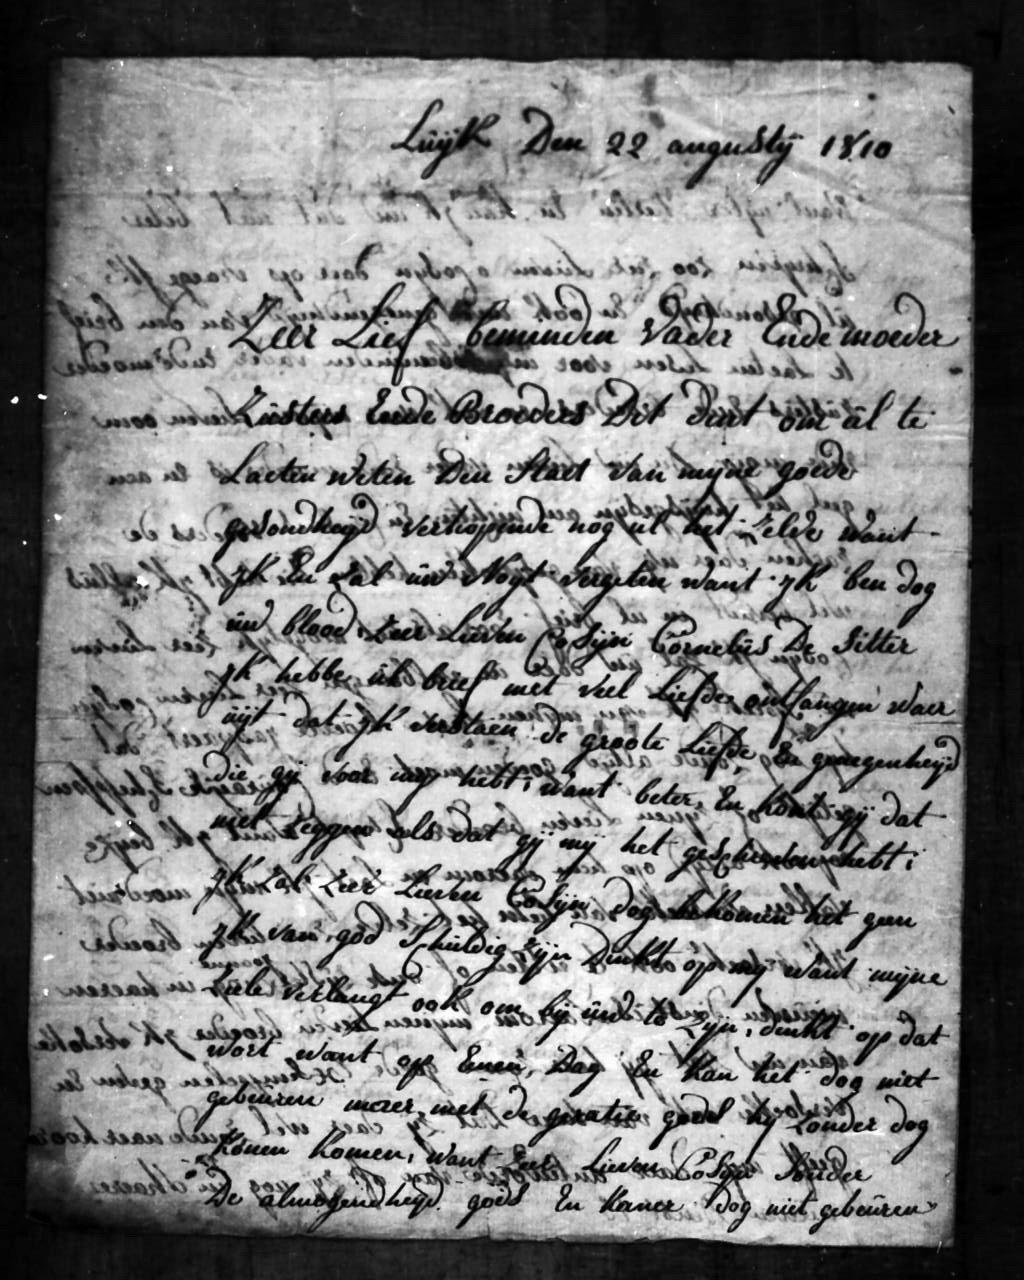 Luÿk Den 22 augustÿ 1810
Zeer Lief beminden Vader Ende moeder
Züsters Ende Broeders Dit dint om ül te
Laeten Weten Den Staet Van myne goede
gesondheÿd verhopende nog ul het zelve want
ÿk En Zal üw Noÿt vergeten want ÿk ben dog
üw bloed, Zeer Lieven Cosÿn Cornelüs De Sitter
ÿk hebbe ül brief met veel Liefde ontfangen waer
üÿt dat ÿk verstaen de groote Liefde, En genegenheÿd
die gÿ voor mÿ hebt, want beter En kontegÿ dat
niet zeggen als dat gÿ mÿ het geschreven hebt,
ÿk Zal Zeer Lieven Cosÿn dog bekomen het geen
ÿk van god Schuldig zÿn Denkt op mÿ want mÿne
ziele verlangt ook om bÿ üw te zÿn, denkt op dat
wort want op Eenen Dag En kan het dog niet
gebeuren maer met de gratie gods kÿ zonder dog
konen komen, want Zeer Lieven Cosÿn Sonder
De almogendheÿd gods En kaner dog niet gebeüren